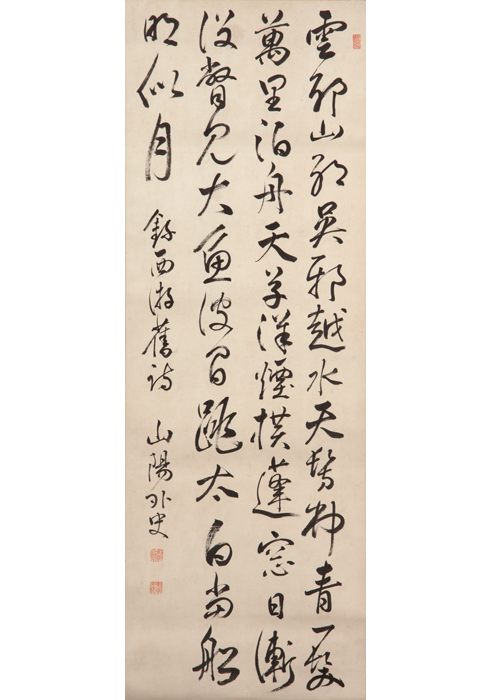 雲耶山耶吳耶越水天髣髴青一髮
萬里泊舟天草洋煙橫篷窓日漸
沒瞥見大魚波間跳太白當船
明似月 錄西游舊詩 山陽外史